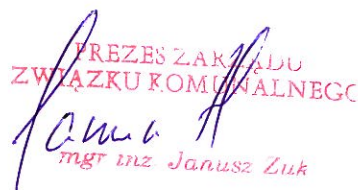 PREZES ZARZĄDU
ZWIĄZKU KOMUNALNEGO
mgr inż. Janusz Żuk